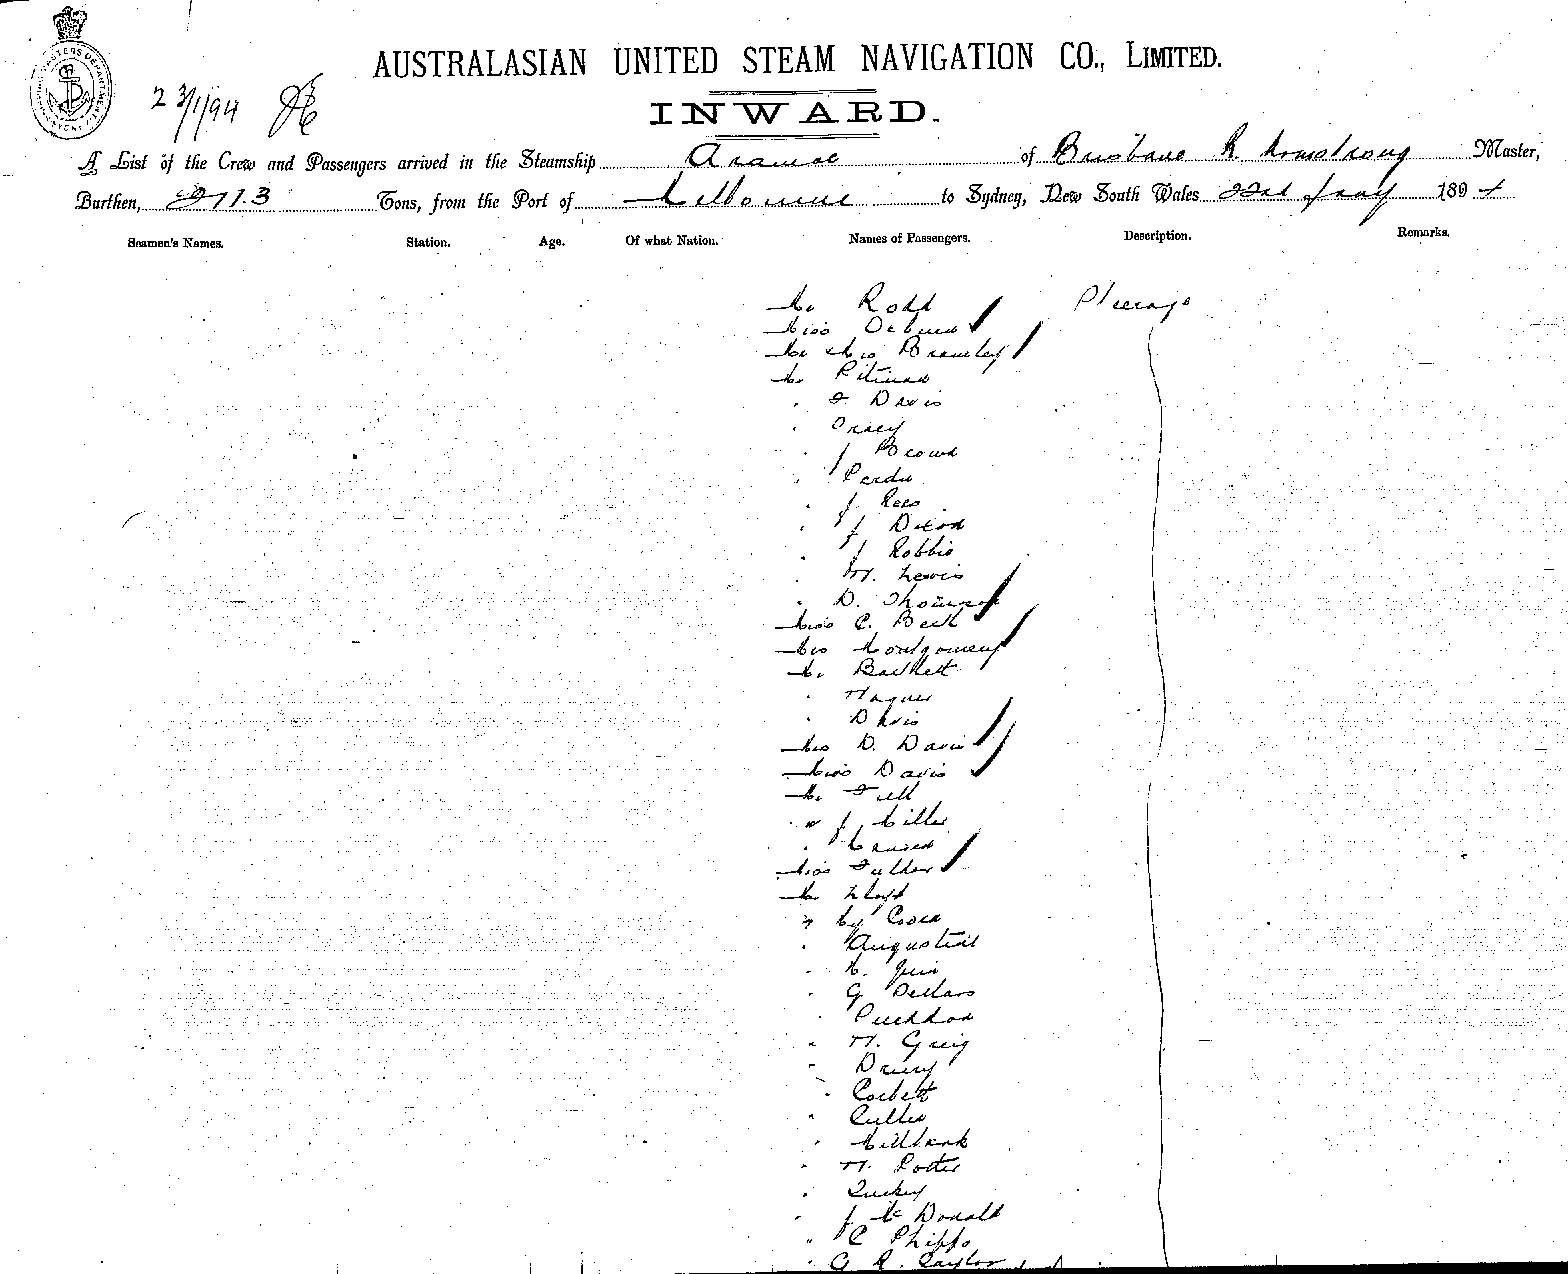 AUSTRALASIAN UNITED STEAM NAVIGATION CO., LIMITED.
23/1/94
INWARD.
A List of the Crew and Passengers arrived in the Steamship Aramac of Brisbane R. Armstrong Master,
Burthen, 2113 Tons, from the Port of Melbourne to Sydney, New South Wales 22nd Jany 1894
Seamen's Names. Station. Age. Of what Nation. Names of Passengers. Description. Remarks.
Mr Rodd Steerage
Miss
Mr & Mrs Bramley
Mr Pitman
" Davis
" Tracy
" J Brown
" Perdu
" J Rees
" J Dixon
" J Robbie
" W. Lewis
" D. Thomson
Miss C. Bell
Mrs Montgomery
Mr Bartlett
" Wagner
" Davis
Mrs D. Davis
Miss Davis
Mr Tull
" J Miller
"
Miss Fuller
Mr Lloyd
"
" Augustin
"
" G Dellars
"
" W. Greig
" Drury
" Corbett
" Cullen
" Millbank
" W. Potter
" Tuckey
" J McDonald
" C Phipps
" G R. Taylor